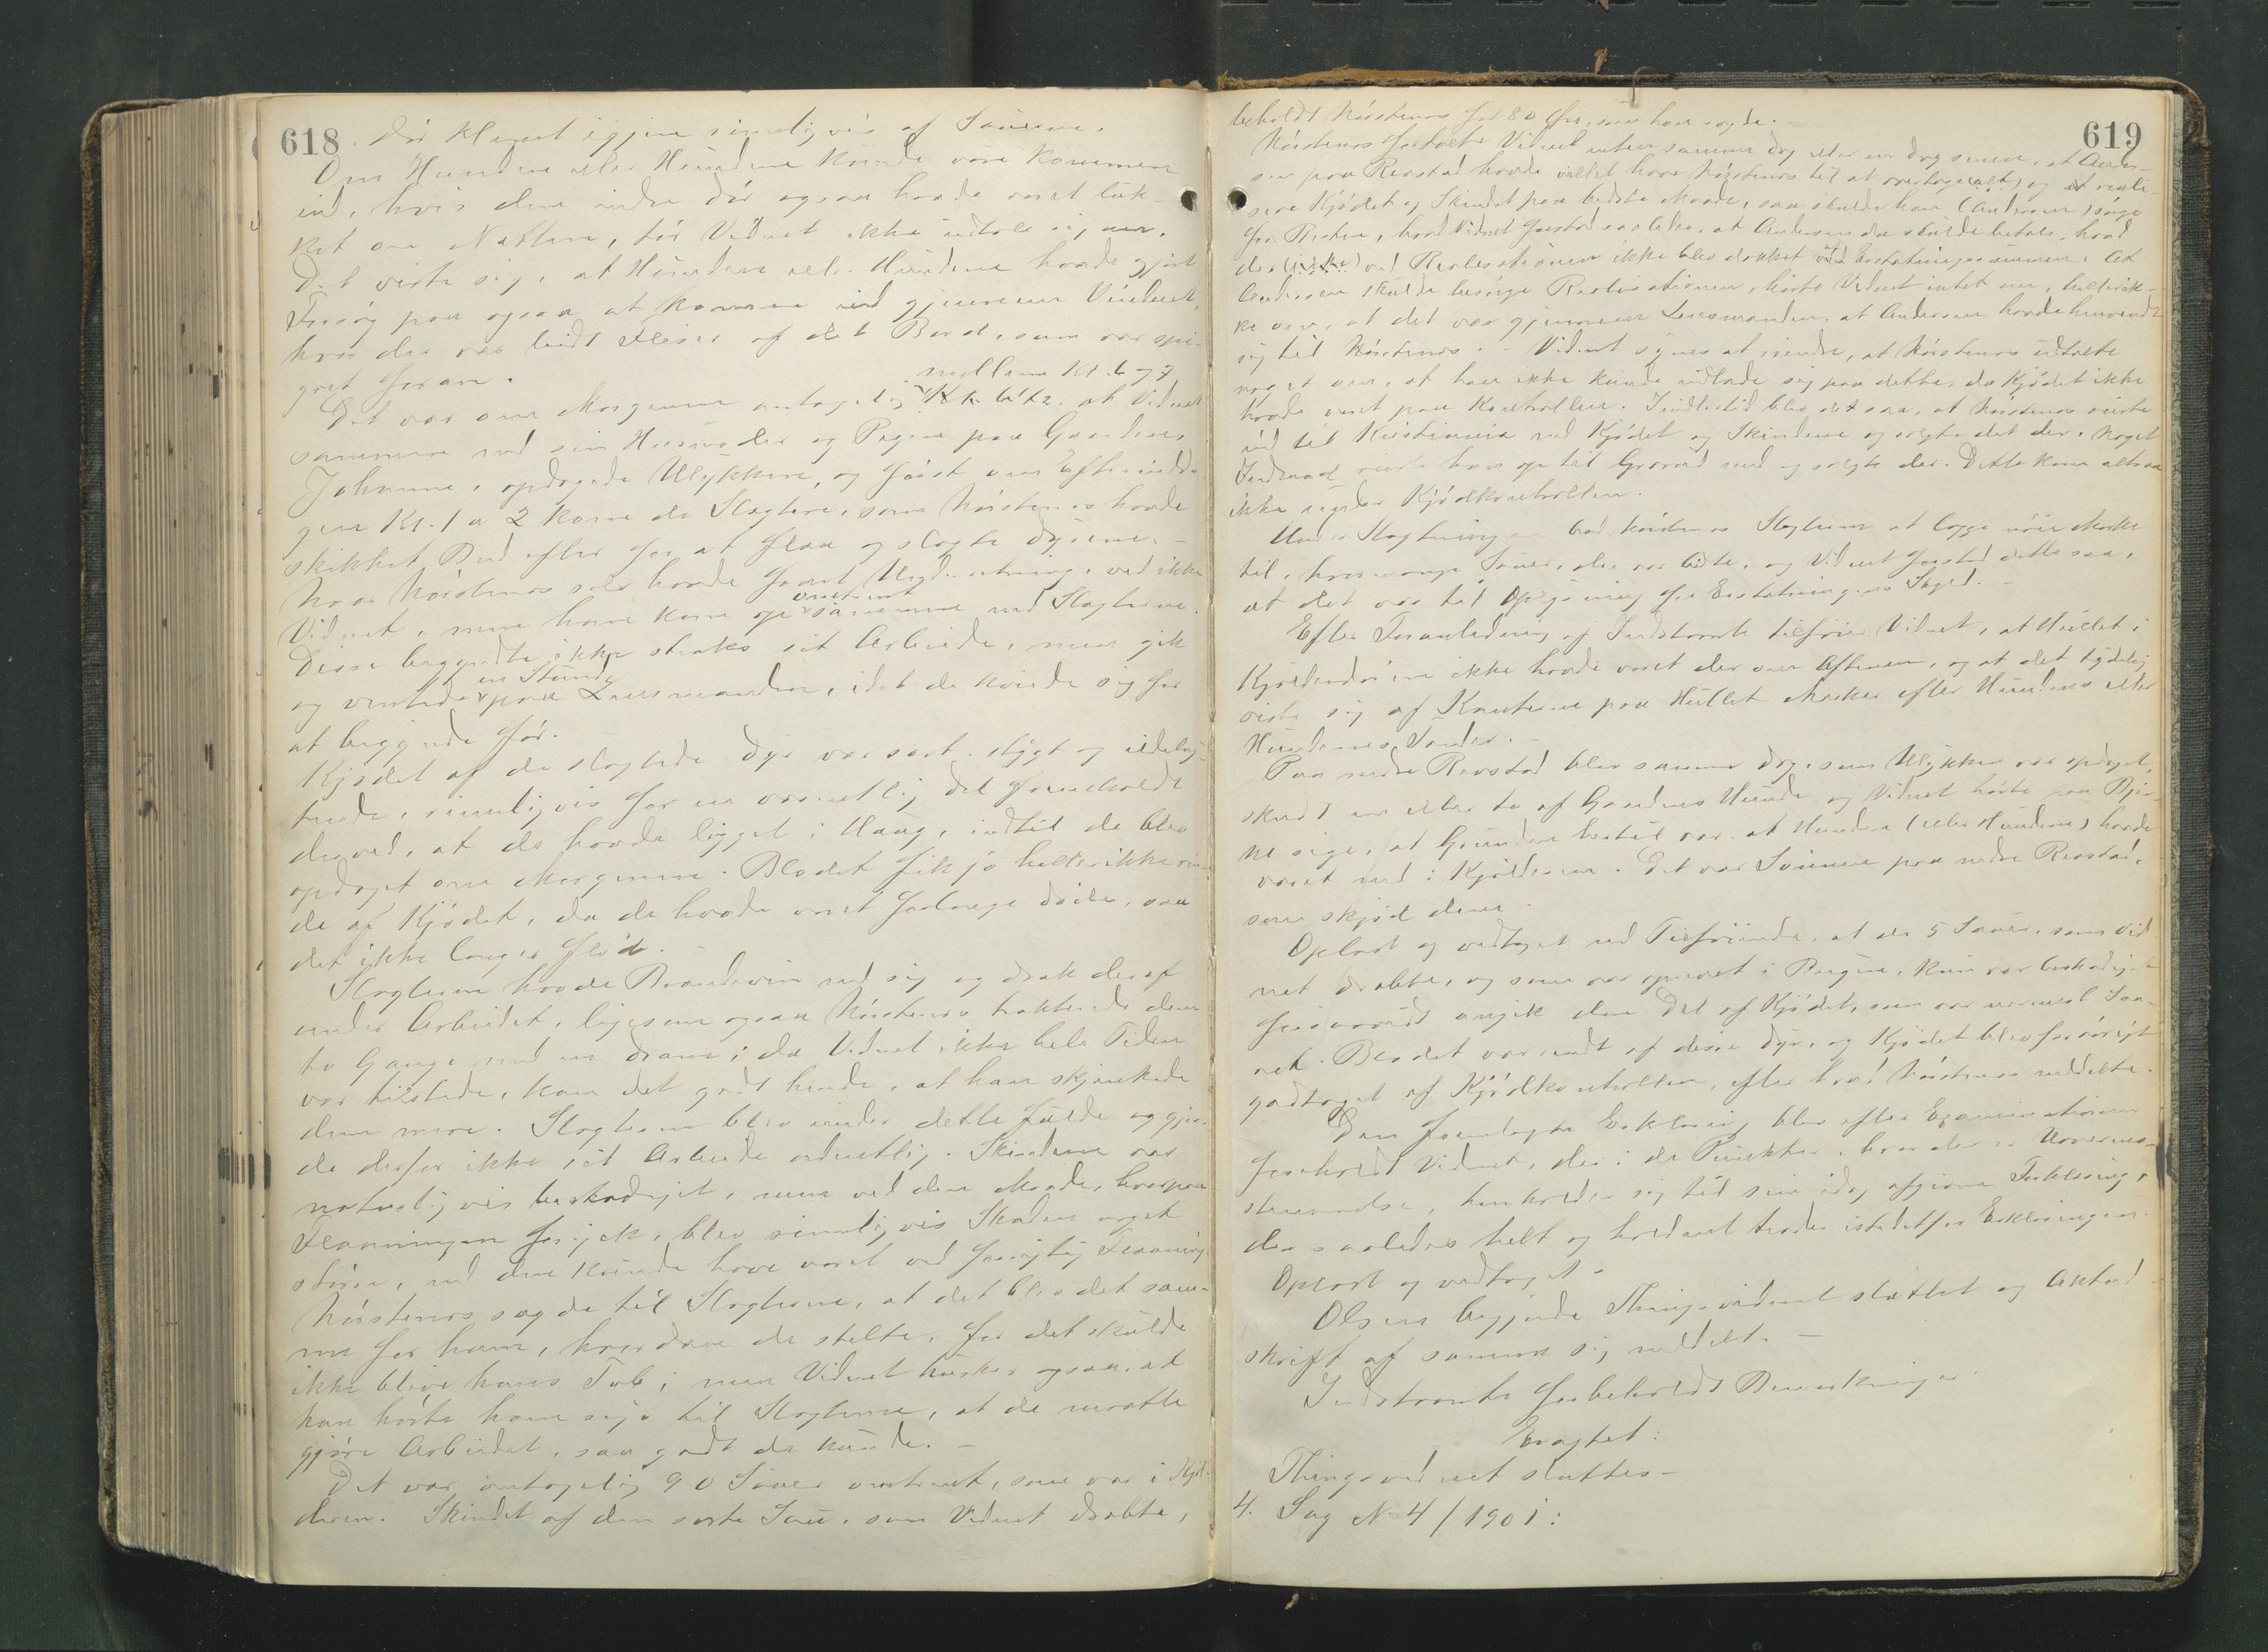 618
dør klemt igjen rimeligvis af Sauerne.
Om Hunden eller Hundene kunde være kommen
ind, hvis den indre dør ogsaa havde været luk-
ket om Natten, tør Vidnet ikke udtale sig om.
Det viste sig, at Hunden eller Hundene havde gjort
Forsøg paa ogsaa at komme ind gjennem Vinduet,
hvor der var bidt Fliser af det Bord, som var spi-
gret foran.
Det var om Morgenen antagelig mellem Kl. 6 og 7 at Vidnet
sammen med sin Husmoder og Pigen paa Gaarden
Johanne, opdagede Ulykken, og først om Eftermidda-
gen Kl. 1 a 2 kom de Slagtere, som Nørstenes havde
skikket Bud efter for at flaa og slagte Dyrene. -
Naar Nørstenes selv havde faaet Underretning, ved ikke
Vidnet, men han kom op omtrent sammen med Slagterne.
Disse begyndte ikke straks sit Arbeide, men gik
og ventede en Stund paa Lensmanden, idet de kviede sig for
at begynde før.
Kjødet af de slagtede Dyr var sort, stygt og ildelug-
tende, rimeligvis for en væsentlig Del foranledet
derved, at de havde ligget i Haug, indtil de blev
opdaget om Morgenen. Blodet fik jo heller ikke rin-
de af Kjødet, da de havde været forlænge døde, saa
det ikke længer flød.
Slagterne havde Brændevin med sig og drak deraf
under Arbeidet, ligesom ogsaa Nørstenes trakterede dem
to Gange med en Dram; da Vidnet ikke hele Tiden
var tilstede, kan det godt hende, at han skjænkede
dem mere. Slagterne blev under dette fulde og gjor-
de derfor ikke sit Arbeide ordentlig. Skindene var
naturligvis beskadiget, men ved den Maade, hvorpaa
Flaaningen foregik, blev rimeligvis Skaden meget
større, end den kunde have været ved forsigtig Flaaning.
Nørstenes sagde til Slagterne, at det blev det sam-
me for ham, hvordan de stelte, for det skulde
ikke blive hans Tab; men Vidnet husker ogsaa, at
han hørte ham sige til Slagterne, at de maatte
gjøre Arbeidet, saa godt de kunde. -
Det var antagelig 90 Sauer omtrent, som var i Kjæl-
deren. Skindet af den sorte Sau, som Vidnet dræbte,
619
beholdt Nørstenes for 80 Øre, som han sagde. -
Nørstenes fortalte Vidnet enten samme dag eller en dag senere, at Ander-
sen paa Ravstad havde villet have Nørstenes til at overtage alt, og at reali-
sere Kjødet og Skindet paa bedste Maade, saa skulde han (Andersen) sørge
for Resten, hvad Vidnet forstod saaledes, at Andersen da skulde betale, hvad
der (ikke) ved Realisationen ikke blev dækket ved Erstatningssummen. At
Andersen skulde besørge Realisationen, hørte Vidnet intet om, heller ik-
ke om, at det var gjennem Lensmanden, at Andersen havde henvendt
sig til Nørstenes. - Vidnet synes at mindes, at Nørstenes udtalte
noget om, at han ikke kunde indlade sig paa dette, da Kjødet ikke
havde været paa Kontrollen. Imidlertid blev det saa, at Nørstenes reiste
ind til Kristiania med Kjødet og Skindene og solgte det der. Noget
Indmad reiste han op til Grorud med og solgte der. Dette kom altsaa
ikke under Kjødkontrollen.
Under Slagtningen bad Nørstenes Slagterne at lægge nøie Mærke
til, hvormange Sauer, der var bidte, og Vidnet forstod dette saa,
at det var til Oplysning for Erstatningens Skyld. -
Efter Foranledning af Indstevnte tilføier Vidnet, at Hullet i
Kjælderdøren ikke havde været der om Aftenen, og at det tydelig
viste sig af Kanterne paa Hullet Mærker efter Hundens eller
Hundenes Tænder. -
Paa nedre Ravstad blev samme dag, som Ulykken var opdaget,
skudt en eller to af Gaardens Hunde og Vidnet hørte paa Byg-
den sige, at Grunden hertil var, at Hunden (eller Hundene) havde
været med i Kjælderen. Det var Sønnen paa nedre Ravstad,
som skjød dem.
Oplæst og vedtaget med Tilføiende, at de 5 Sauer, som Vid-
net dræbte, og som var opsat i Bingen, kun var beskadiget
forsaavidt angik den Del af Kjødet, som var nærmest Saa-
ret. Blodet var rendt af disse Dyr, og Kjødet blev forøvrigt
godtaget af Kjødkontrollen, efter hvad Nørstenes meddelte.
Den fremlagte Erklæring blev efter Examinationen
foreholdt Vidnet, der i de Punkter, hvor der er Uoverens-
stemmelse, henholder sig til sin idag afgivne Forklaring,
der saaledes helt og holdent træder istedetfor Erklæringen.
Oplæst og vedtaget. -
Olsen begjærede Thingsvidnet sluttet og Akter ud-
skrift af samme sig meddelt. -
Indstævnte forbeholdt Bemærkninger.
Eragtet:
Thingsvidnet sluttes -
4. Sag N. 4/1901: